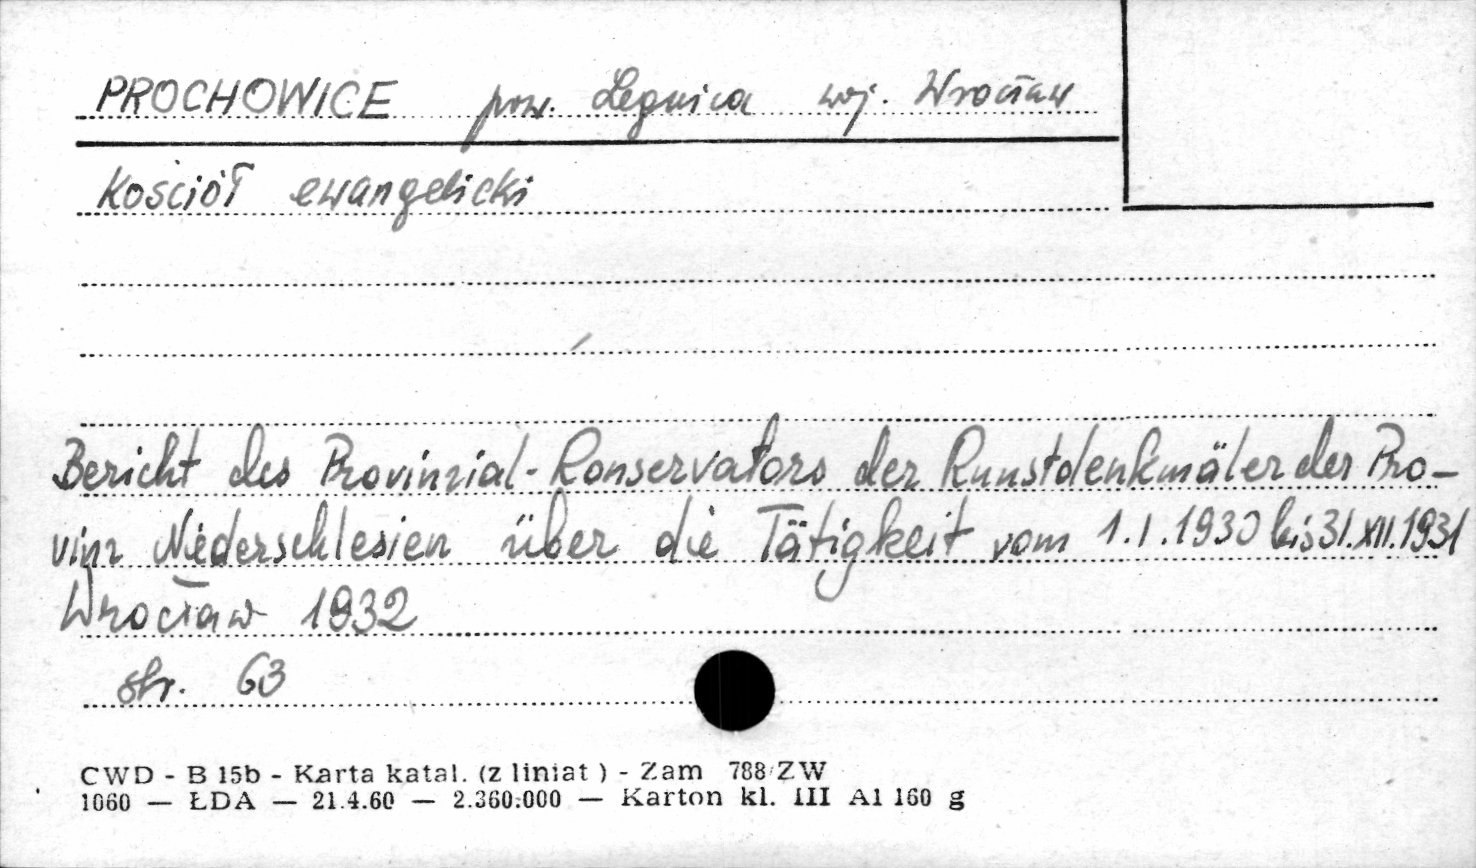 PROCHOWICE pow. Legnica woj. Wrocław
Kościół ewangelicki
Bericht des Provinzial-Konservators der Kunstdenkmäler der Pro-
vinz Niederschlesien über die Tätigkeit vom 1.I.1930 bis 31.XII.1931
Wrocław 1932
str. 63
CWD - B 15b - Karta katal. (z liniat ) - Zam 788/ZW
1060 — ŁDA — 21.4.60 — 2.360.000 — Karton kl. III A1 160 g